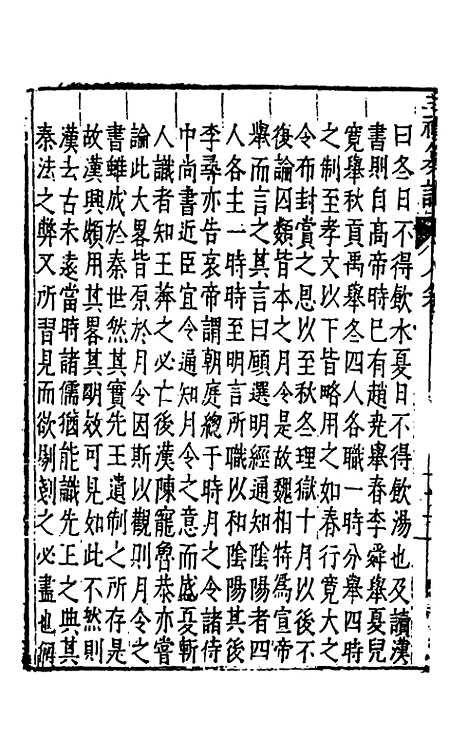 曰冬日不得飮水夏日不得飮湯也及讀漢
書則自髙帝時已有趙堯舉春李舜舉夏兒
寛舉秋貢禹舉冬四人各職一時分舉四時
之制至孝文以下皆略用之如春行寛大之
令布封賞之恩以至秋冬理獄十月以後不
復論囚類皆本之月令是故魏相特爲宣帝
舉而言之其言曰願選明經通知陰陽者四
人各主一時時至明言所職以和陰陽其後
李尋亦告哀帝謂朝庭緫于時月之令諸侍
中尚書近臣宜令通知月令之意而盛夏斬
人識者知王莽之必亡後漢陳寵魯恭亦嘗
論此大畧皆原於月令因斯以觀則月令之
書雖成於秦世然其實先王遺制之所存是
故漢興頗用其畧其明效可見如此不然則
漢去古未遠當時諸儒猶能識先王之典其
秦法之弊又所習見而欲剔剗之必盡也